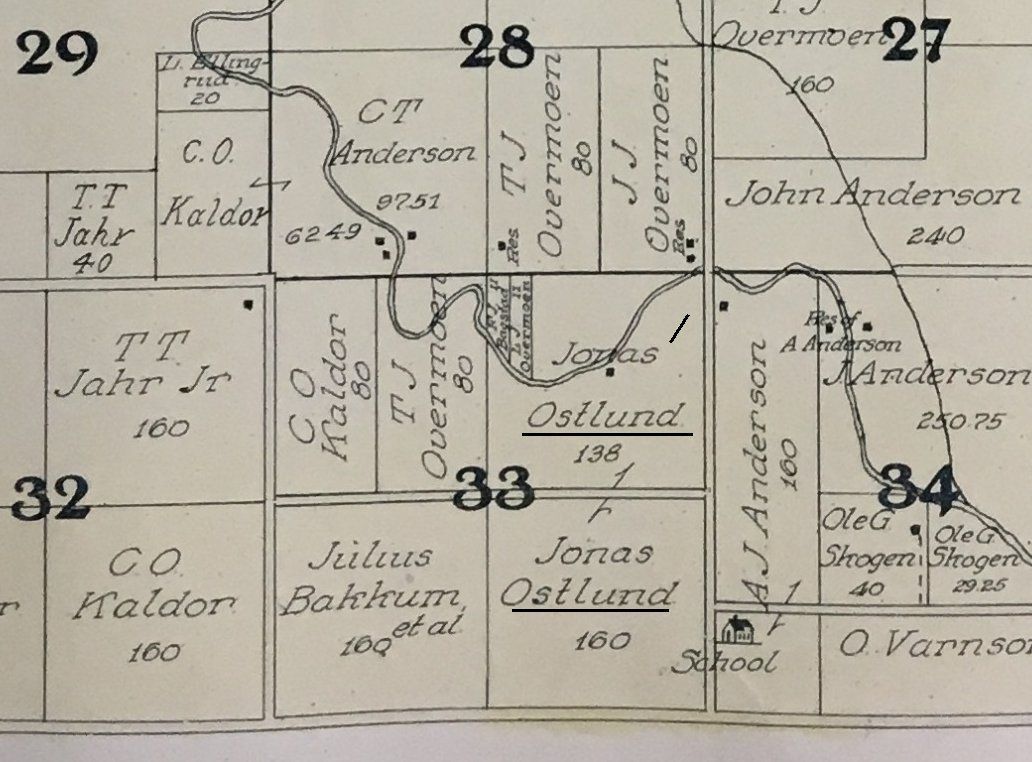 29
28
27
T. J.
Overmoen
160
L. Elling-
rud
20
C T
Anderson
97.51
62 49
T J
Overmoen
80
Res.
J J
Overmoen
80
Res
C. O.
Kaldor
T. T
Jahr
40
John Anderson
240
T T
Jahr Jr
160
C O
Kaldor
80
T J
Overmoen
80
Bagstad
Overmoen
Jonas
Ostlund
138
A. J. Anderson
160
Res of
A Anderson
J Anderson
250.75
32
33
34
C O.
Kaldor
160
Julius
Bakkum,
et al
160
Jonas
Ostlund
160
Ole G
Skogen
40
Ole G.
Skogen
29.25
School
O. Varnson